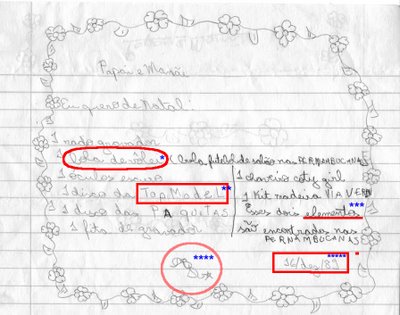 Papai e Mamãe
Eu quero de Natal:
1 rádio gravador
1 bola de volei* (bola futebol de salão nas PERNAMBUCANAS
1 óculos escuro
1 disco da TOP MODEL**
1 disco das PAQUITAS
1 fita de gravador
1 chaveiro coty girl
1 Kit madeira VIA VERDE
Esses dois elementos***
são encontrados nas
PERNAMBUCANAS
****
16/dez/89*****